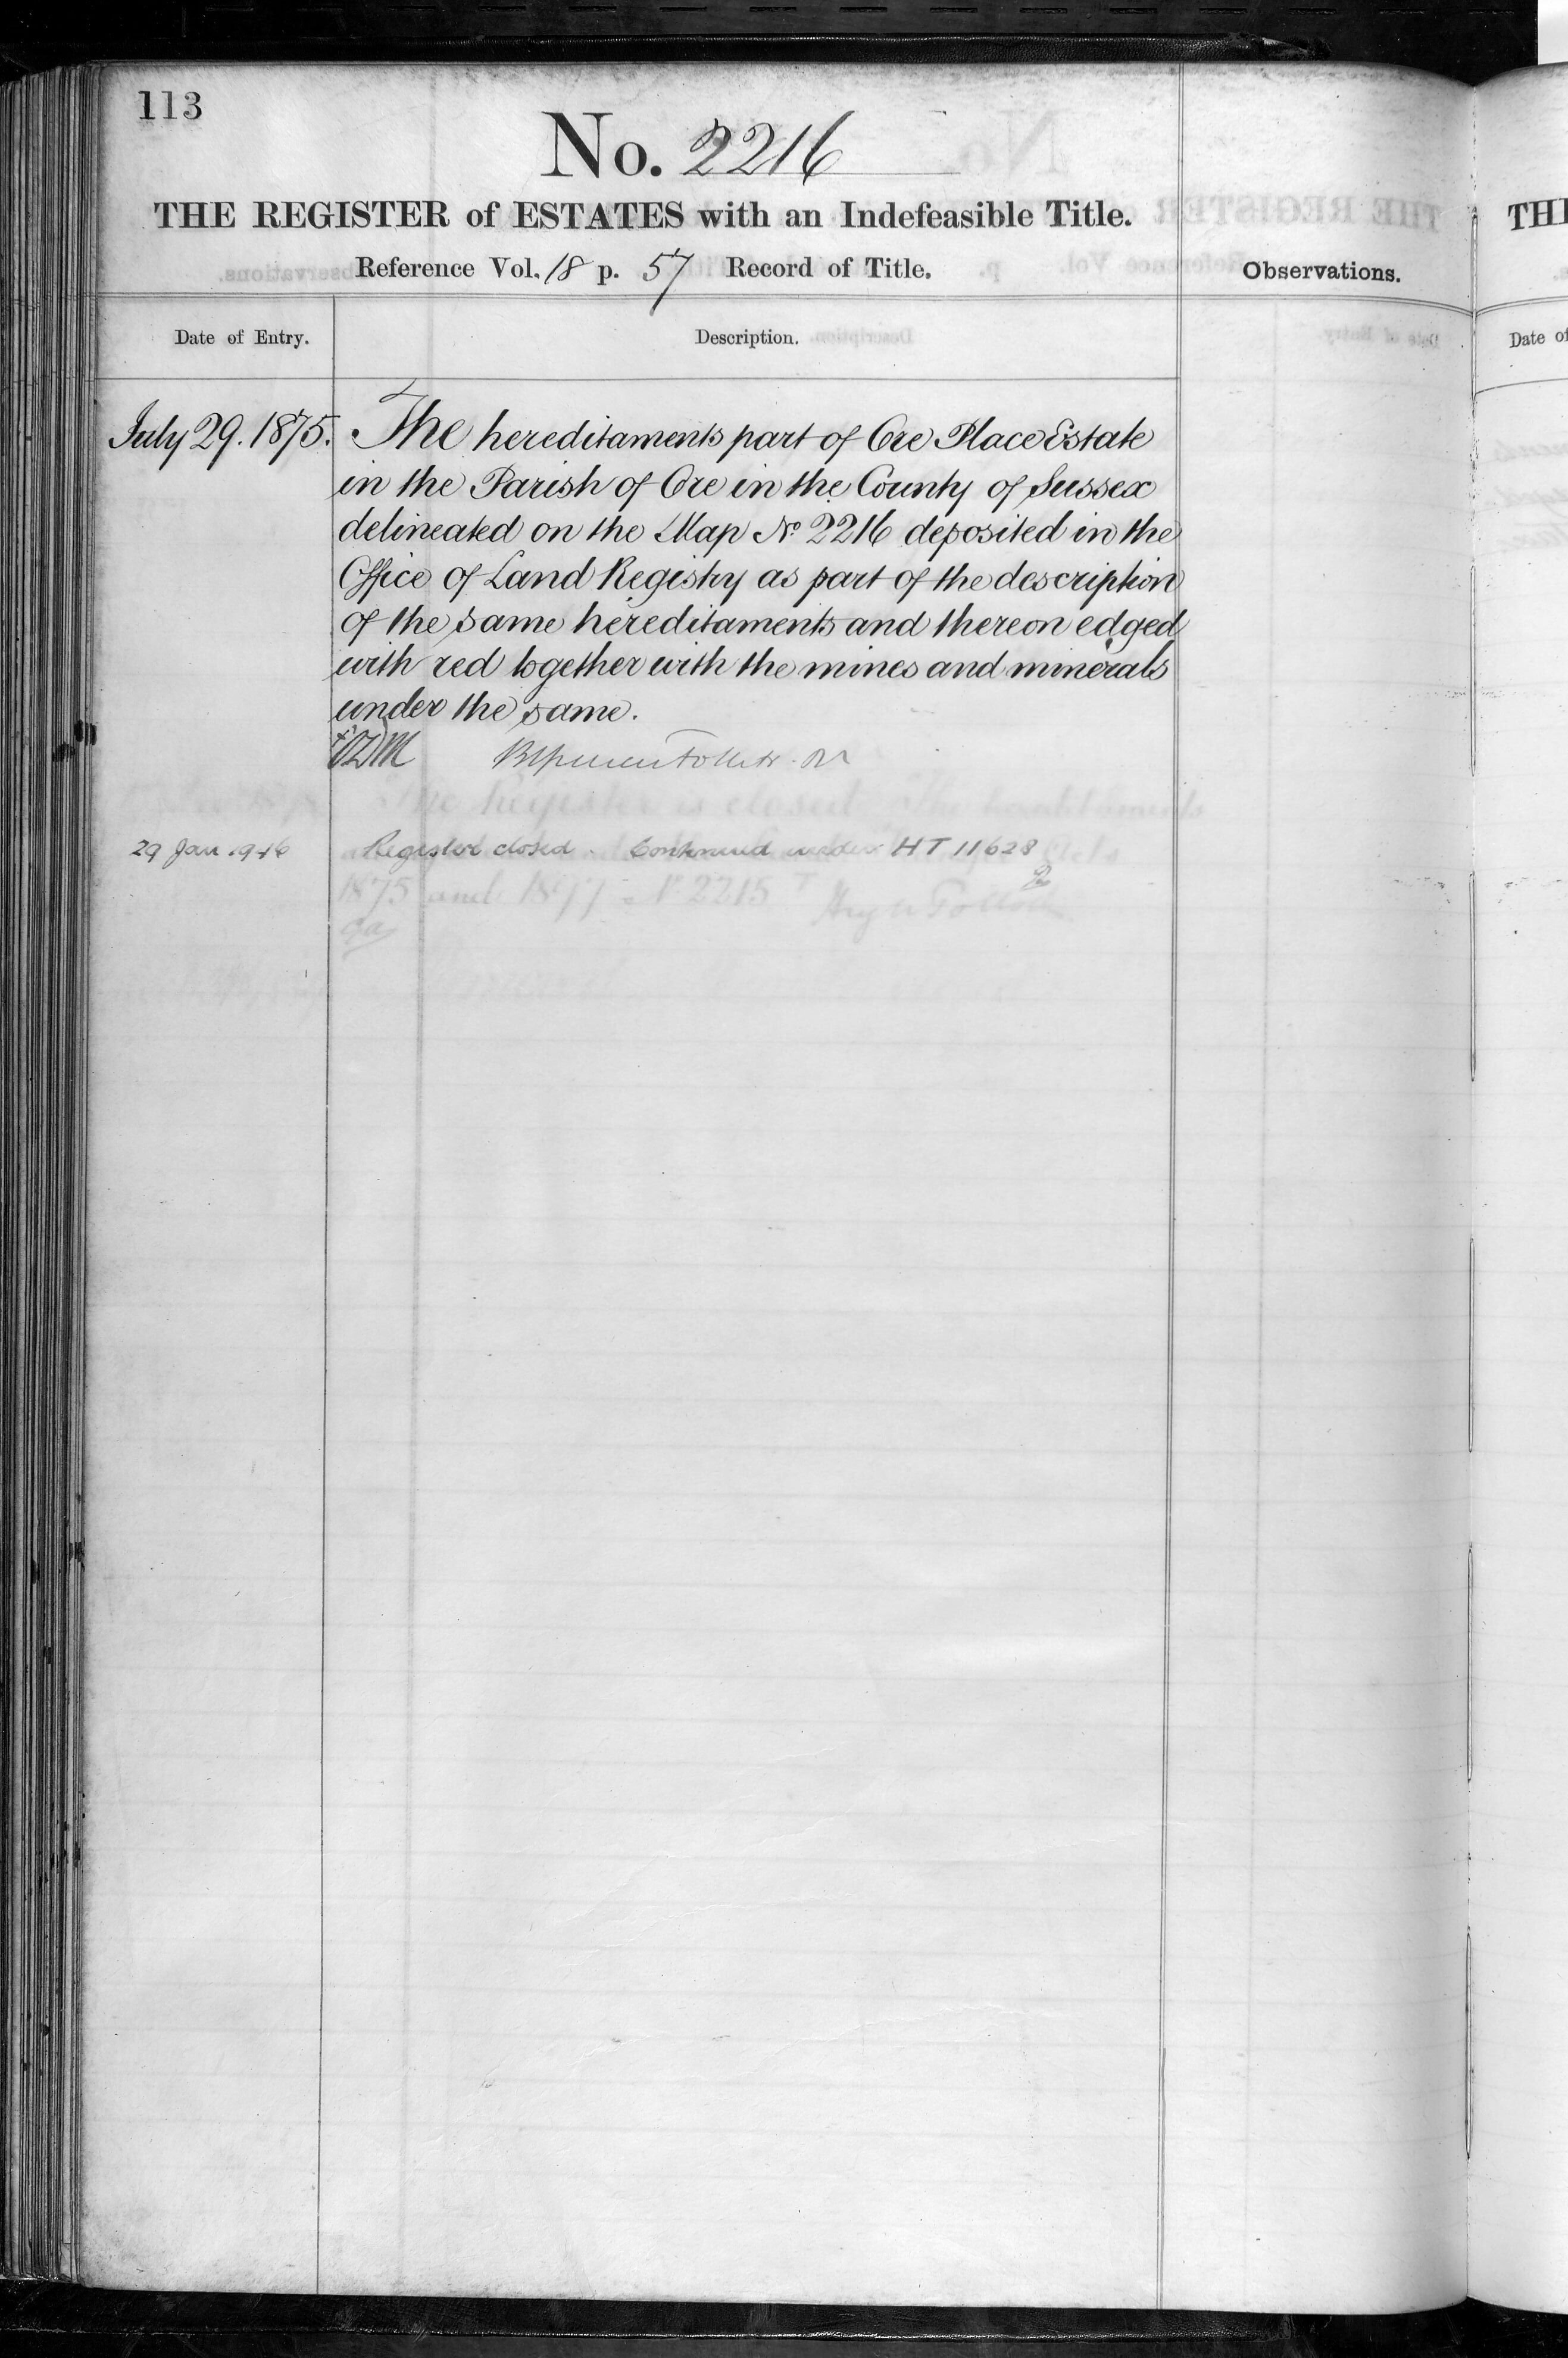 113
No. 2216
THE REGISTER of ESTATES with an Indefeasible Title.
Reference Vol. 18 p. 57 Record of Title.
Observations.
Date of Entry.
Description.
July 29. 1875.
The hereditaments part of Ore Place Estate
in the Parish of Ore in the County of Sussex
delineated on the Map No. 2216 deposited in the
Office of Land Registry as part of the description
of the same hereditaments and thereon edged
with red together with the mines and minerals
under the same.
29 Jan 1946
Register closed. Continued under HT 11628
The Register is closed. The hereditaments
1875 and 1897 No 2215
THE
Date of